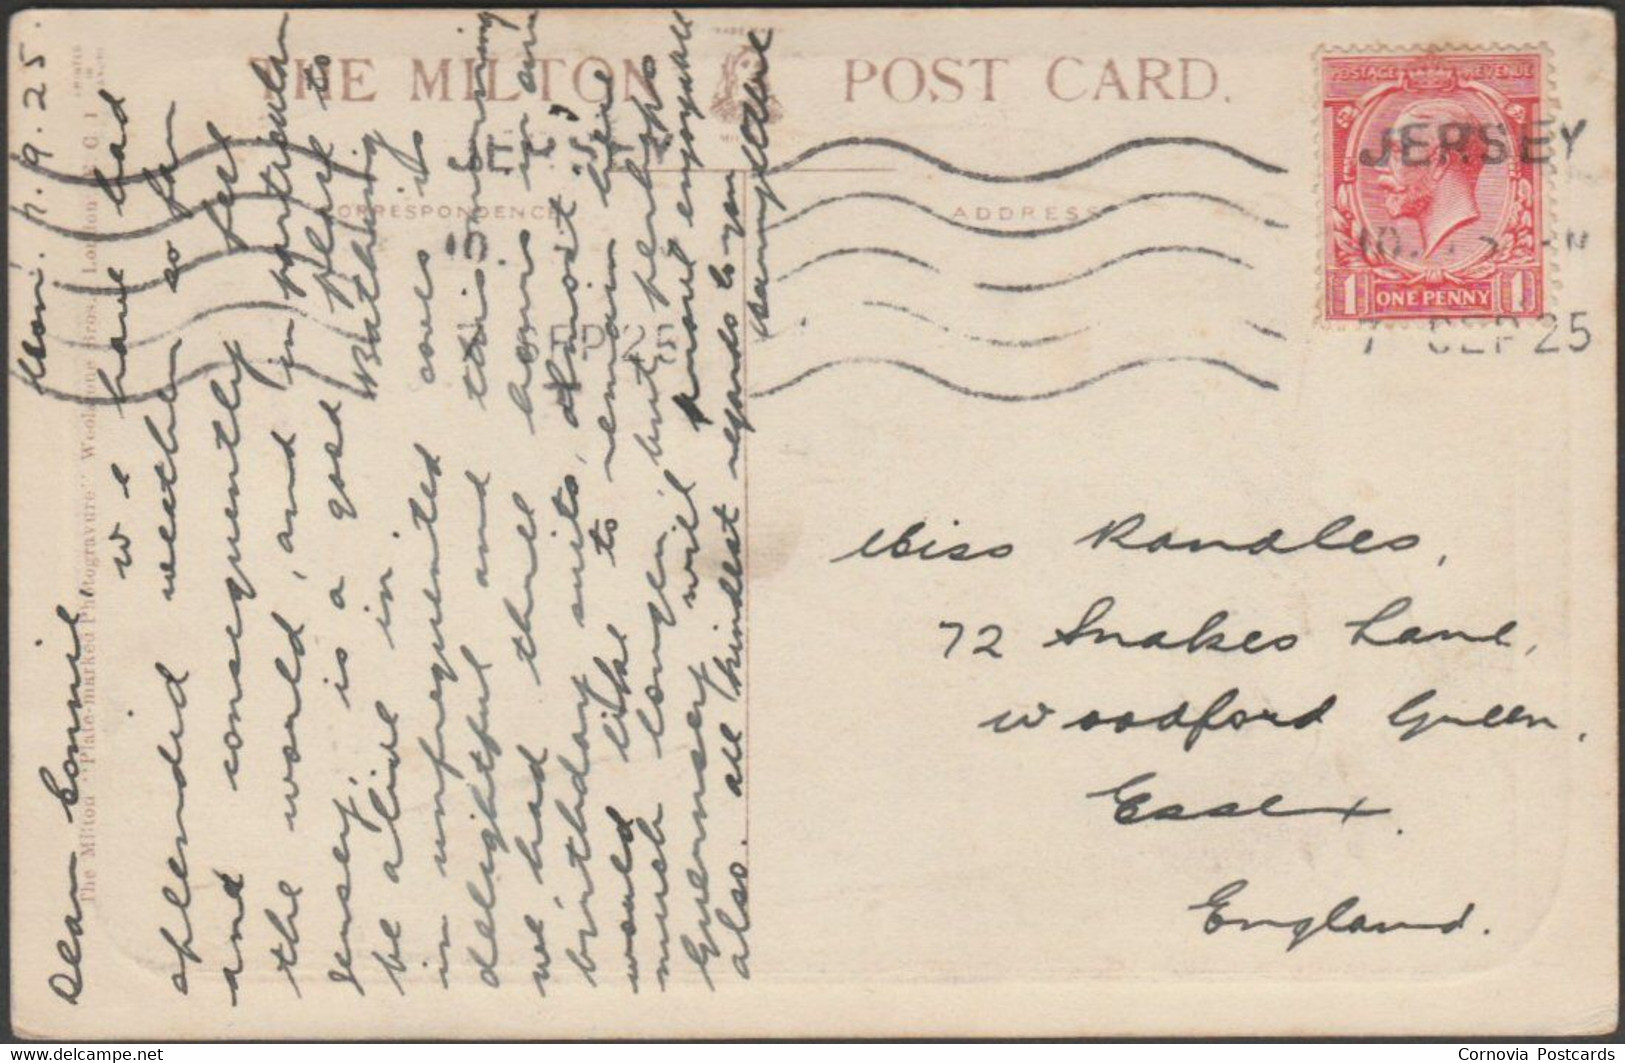 THE MILTON POST CARD.
CORRESPONDENCE
ADDRESS
POSTAGE REVENUE
1 ONE PENNY 1
JERSEY
7 SEP 25
SEP 25
Mon. 7.9.25.
Dear Connie,
We have had
splendid weather so far
and consequently feel
the world, and in particular
Jersey, is a good place to
be alive in. Bathing
in unfrequented coves is
delightful and this morning
we had three hours in our
birthday suits, almost!
would like to remain here
much longer, but perhaps
Guernsey will prove enjoyable
also. All kindest regards to you
Miss Randles,
72 Snakes Lane,
Woodford Green,
Essex.
England.
The Milton "Plate-marked Photogravure" Woolstone Bros., London E.C. 1
Cornovia Postcards